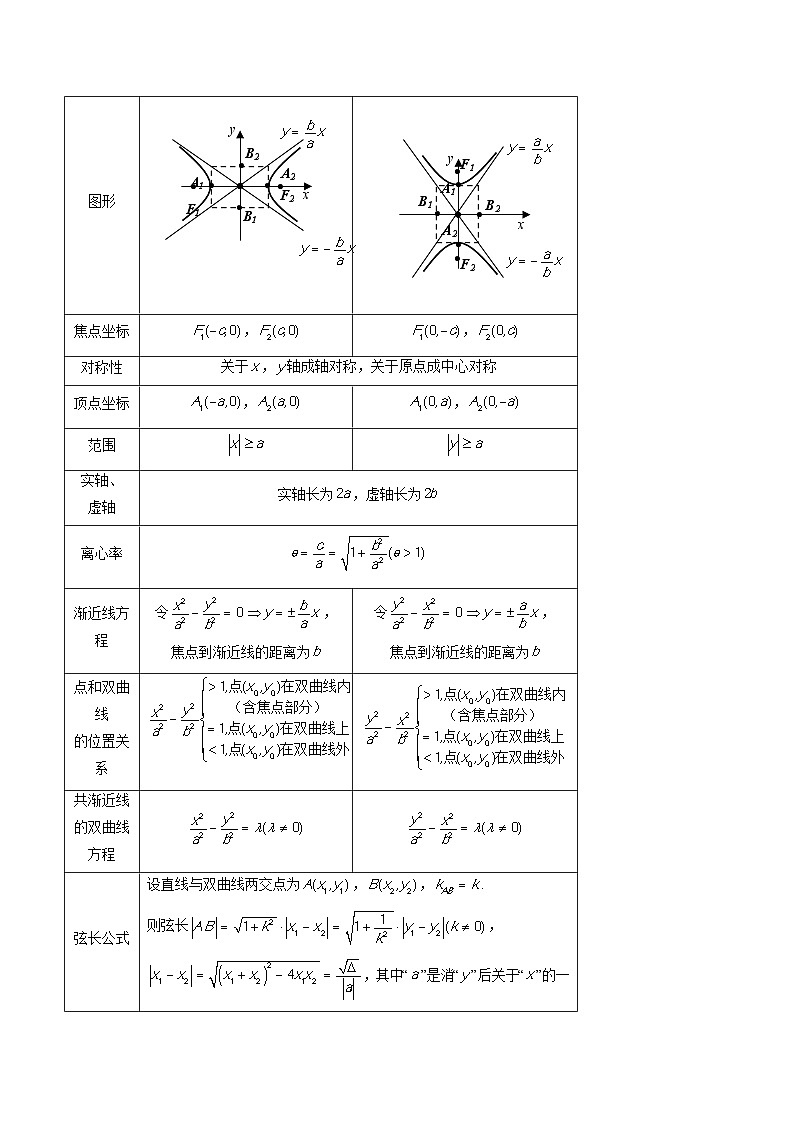 图形
y
y = b/a x
B2
A1
A2
F1
F2
x
B1
y = − b/a x
y
y = a/b x
F1
A1
B1
B2
x
A2
F2
y = − a/b x
焦点坐标
F₁(−c,0)，F₂(c,0)
F₁(0,−c)，F₂(0,c)
对称性
关于x，y轴成轴对称，关于原点成中心对称
顶点坐标
A₁(−a,0)，A₂(a,0)
A₁(0,a)，A₂(0,−a)
范围
|x| ≥ a
|y| ≥ a
实轴、
虚轴
实轴长为2a，虚轴长为2b
离心率
e = c/a = √(1 + b²/a²) (e > 1)
渐近线方
程
令 x²/a² − y²/b² = 0 ⇒ y = ± b/a x，
焦点到渐近线的距离为b
令 y²/a² − x²/b² = 0 ⇒ y = ± a/b x，
焦点到渐近线的距离为b
点和双曲
线
的位置关
系
x²/a² − y²/b²
> 1,点(x₀,y₀)在双曲线内
（含焦点部分）
= 1,点(x₀,y₀)在双曲线上
< 1,点(x₀,y₀)在双曲线外
y²/a² − x²/b²
> 1,点(x₀,y₀)在双曲线内
（含焦点部分）
= 1,点(x₀,y₀)在双曲线上
< 1,点(x₀,y₀)在双曲线外
共渐近线
的双曲线
方程
x²/a² − y²/b² = λ(λ ≠ 0)
y²/a² − x²/b² = λ(λ ≠ 0)
弦长公式
设直线与双曲线两交点为A(x₁,y₁)，B(x₂,y₂)，k_AB = k．
则弦长|AB| = √(1+k²) · |x₁ − x₂| = √(1 + 1/k²) · |y₁ − y₂|(k ≠ 0)，
|x₁ − x₂| = √((x₁ + x₂)² − 4x₁x₂) = √Δ/|a|，其中“a”是消“y”后关于“x”的一